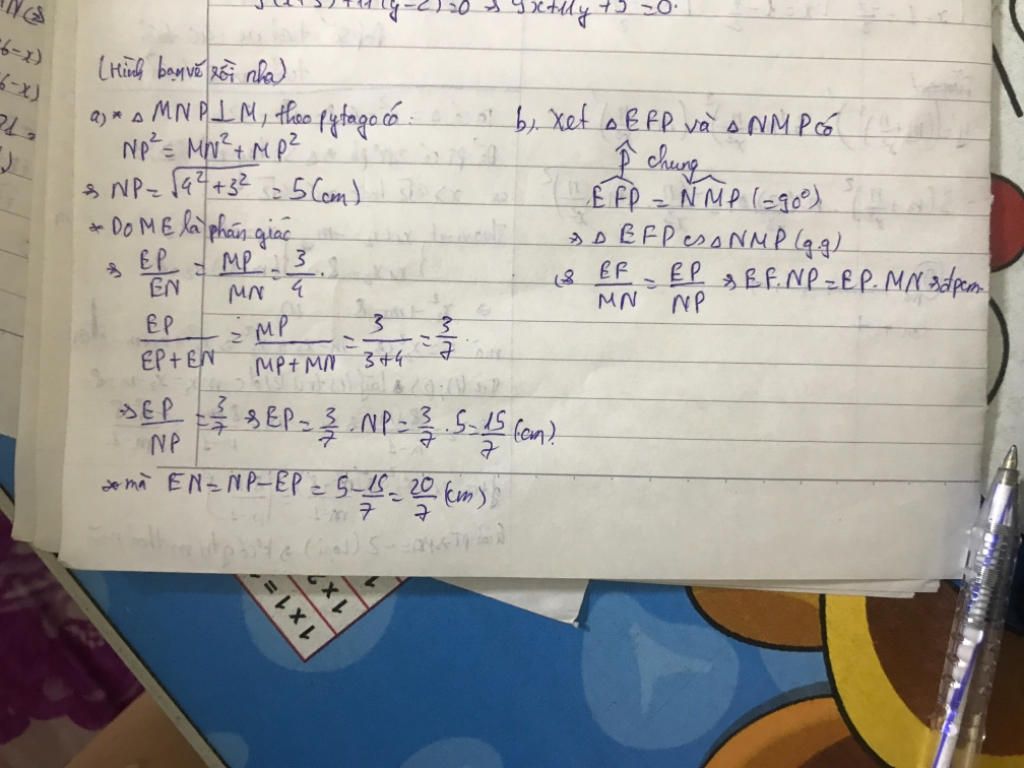 3(x+3)+11(y-2)=0 → 3x+11y+5=0.
(Hình bạn vẽ rồi nha)
a) * △ MNP⊥M, theo pytago có:
NP² = MN² + MP²
→ NP = √4²+3² = 5(cm)
* Do ME là phân giác
→ EP/EN = MP/MN = 3/4.
EP/EP+EN = MP/MP+MN = 3/3+4 = 3/7.
→ EP/NP = 3/7 → EP = 3/7 . NP = 3/7 . 5 = 15/7 (cm).
mà EN = NP - EP = 5 - 15/7 = 20/7 (cm)
b). Xet △ EFP và △ NMP có
P̂ chung
EFP = NMP (=90°)
→ △ EFP ∽ △ NMP (gg)
EF/MN = EP/NP → EF.NP = EP.MN → dpcm
6-x)
6-x)
1 x 1 =
1 x
1